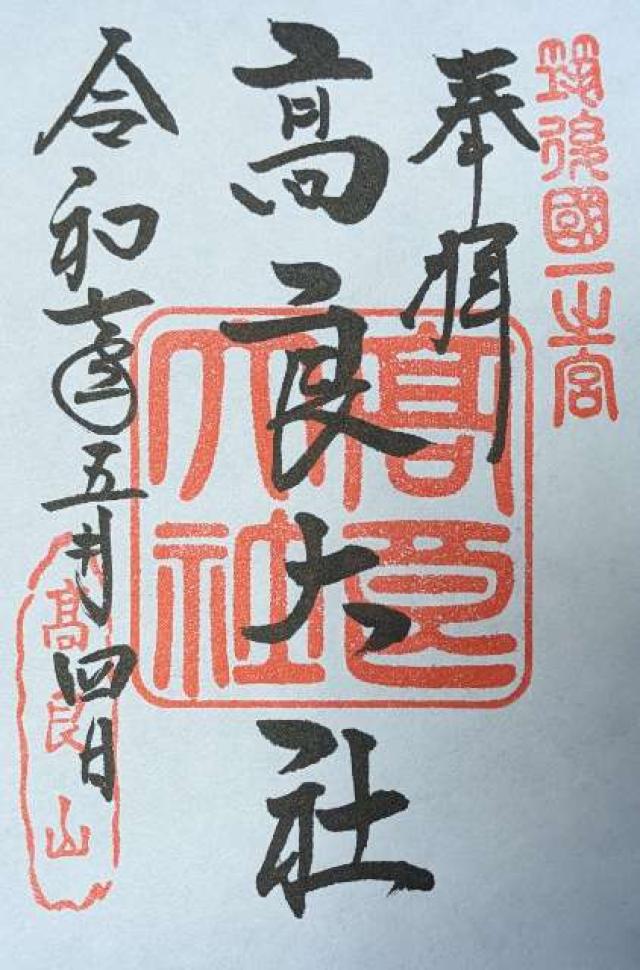 筑後國一之宮
奉拝
高良大社
高良大社
令和 五月四日
高良山